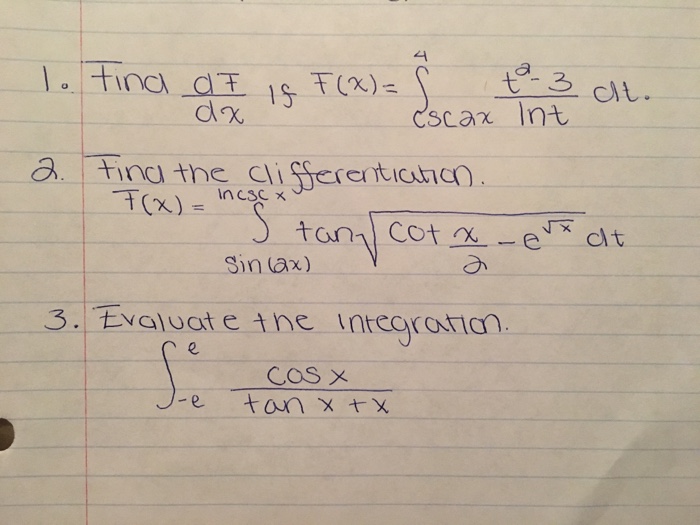 1. Find dF/dx if F(x) = ∫_{csc2x}^{4} (t²-3)/(lnt) dt.
2. Find the differentiation.
F(x) = ∫_{sin(2x)}^{lncsc x} tan√(cot x/2 - e^{√x}) dt
3. Evaluate the integration.
∫_{-e}^{e} (cos x)/(tan x + x)